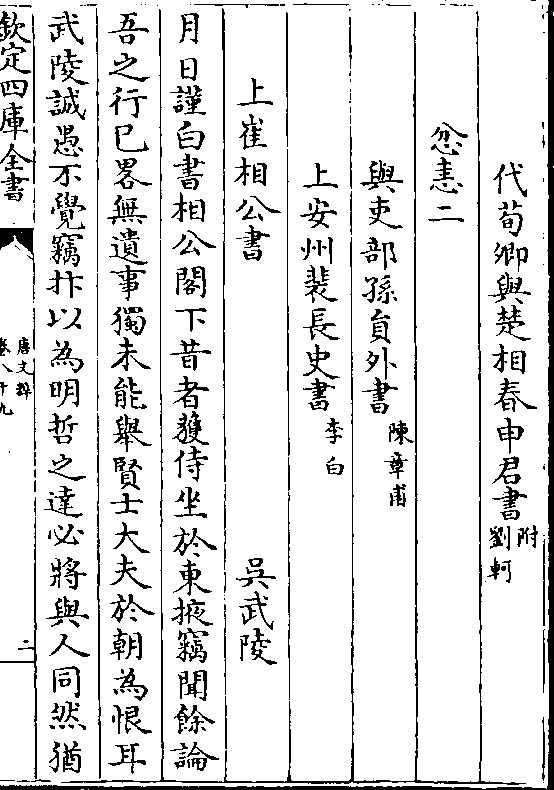 代荀卿與楚相春申君書附劉軻
忿恚二
與吏部孫貟外書陳章甫
上安州裴長史書李白
上崔相公書 吳武陵
月日謹白書相公閣下昔者獲侍坐於東掖竊聞餘論
吾之行已畧無遺事獨未能舉賢士大夫於朝為恨耳
武陵誠愚不覺竊抃以為明哲之達必將與人同然猶
欽定四庫全書
唐文粹
卷八十九
二